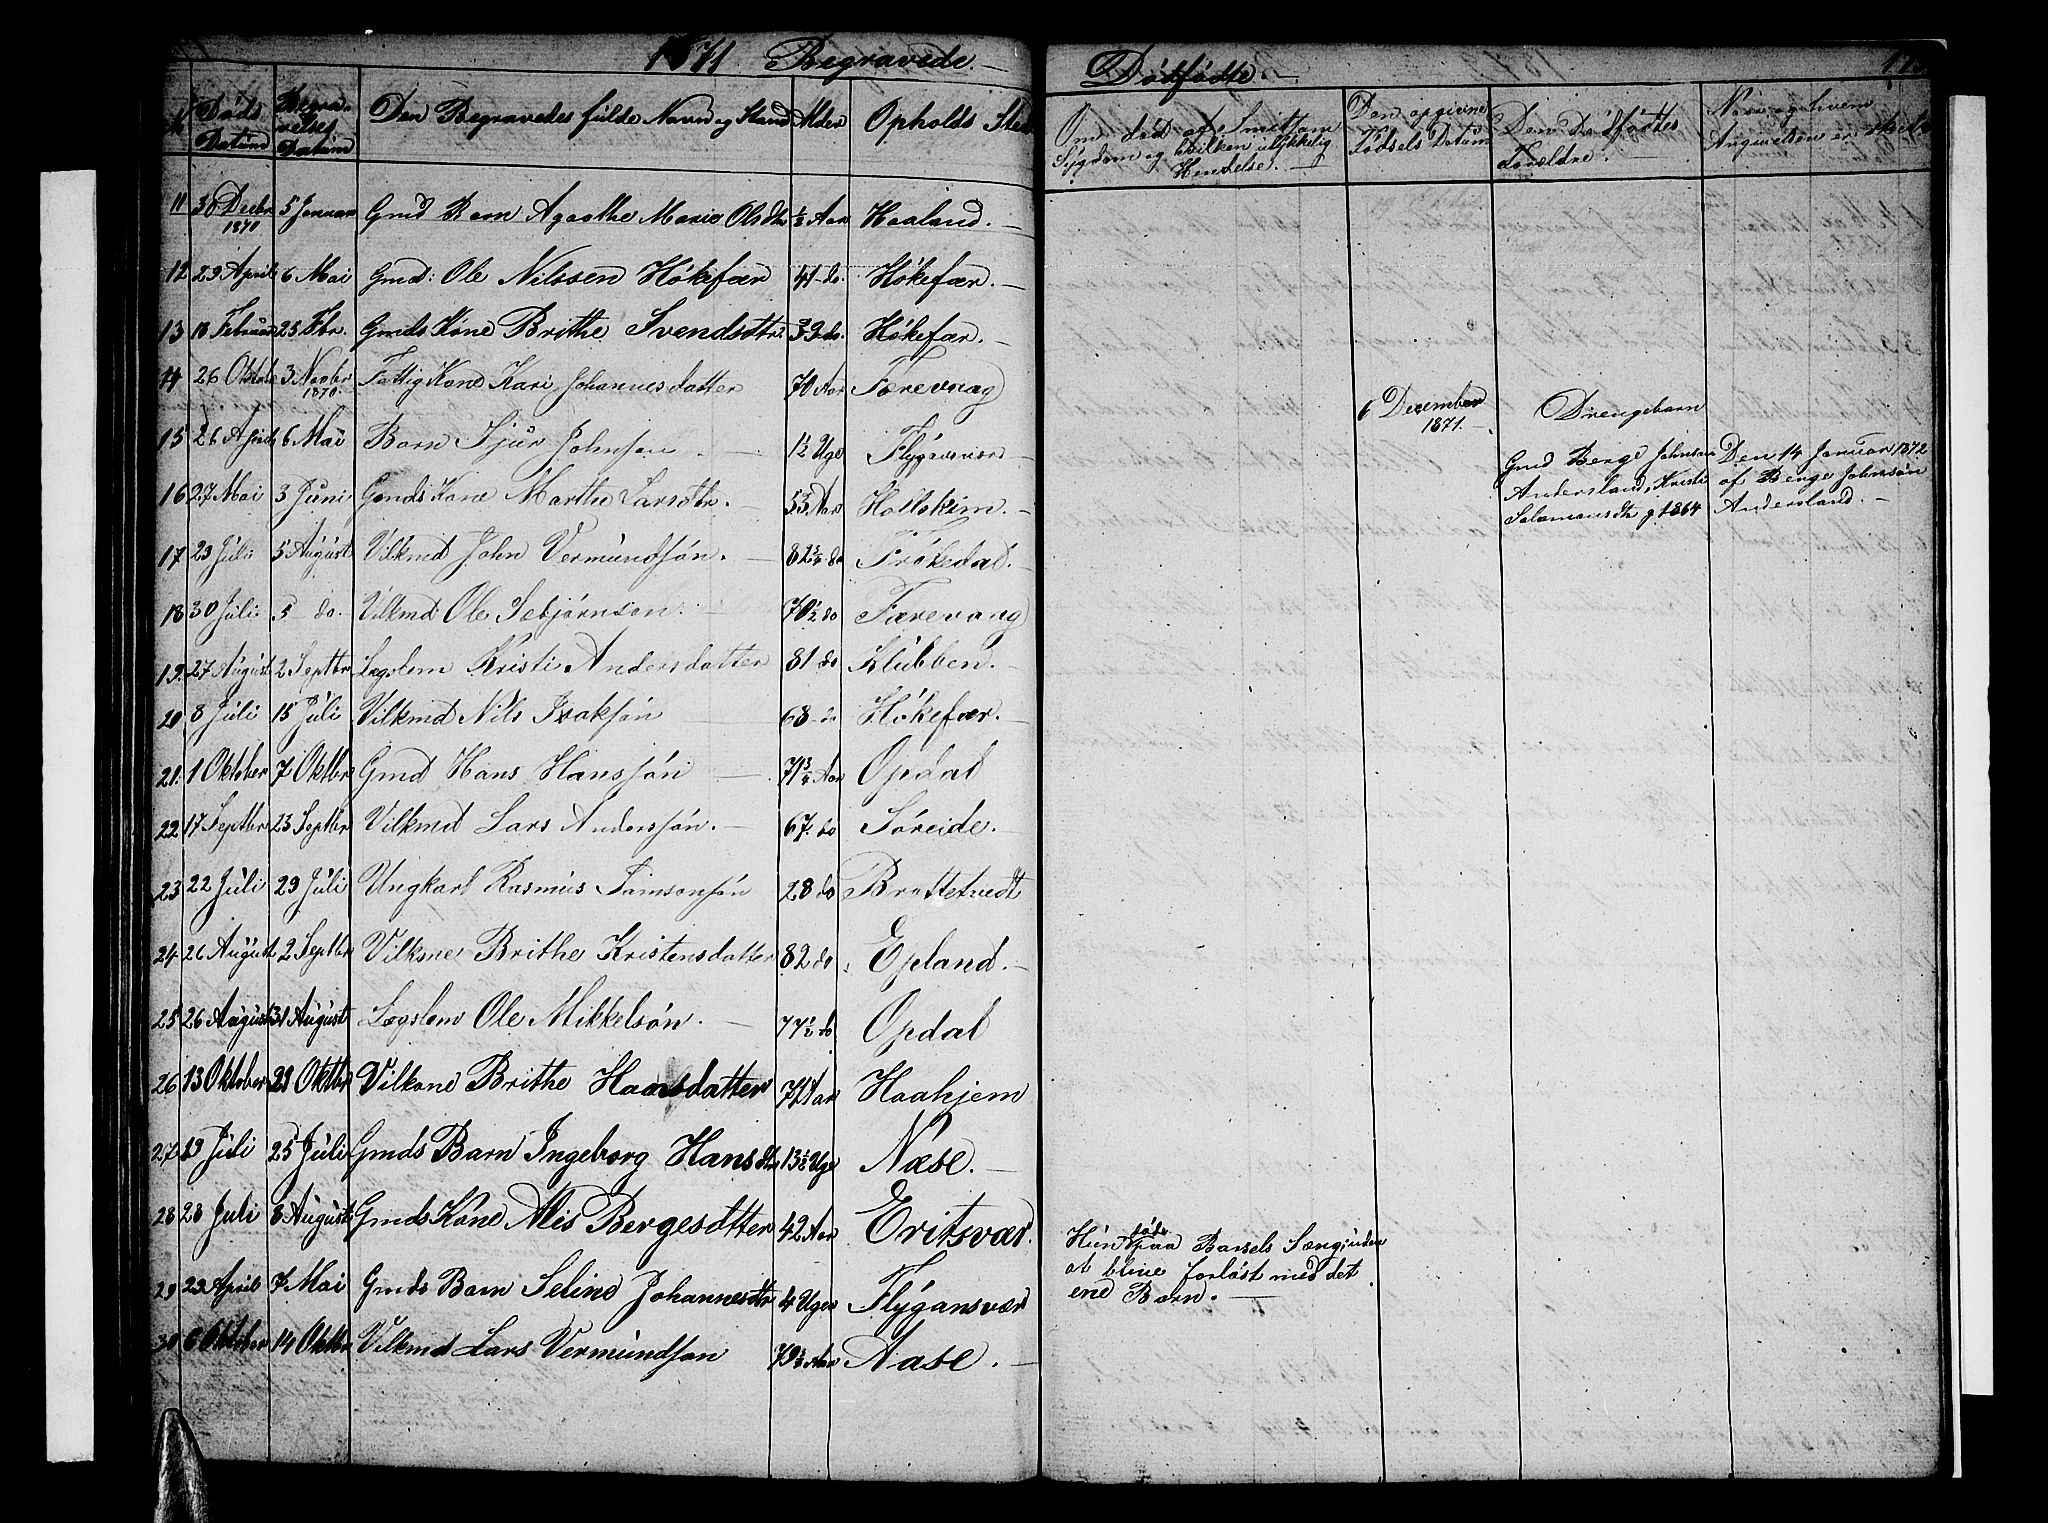 1871 Begravede.
Døds Datum
Begra- velses Datum
Den Begravedes fulde Navn og Stand
Alder
Opholds Sted
11 30 Decbr 1870 5 Januar Gmd Barn Agaathe Marie Olsdtr ½ Aar Haaland. —
12 29 April 6 Mai Gmd: Ole Nilssen Høkefær 41 do. Høkefær. —
13 18 Februar 25 Febr. Gmds Kone Brithe Svendsdtr. 33 do. Høkefær. —
14 26 Oktobr 3 Novbr 1870 Fattig Kone Kari Johannesdatter 70 Aar Færevaag
15 26 April 6 Mai Barn Sjur Johnson — 1½ Uge Flygansvær
16 27 Mai 3 Juni Gmds Kone Marthe Larsdtr. — 53 Aar
17 23 Juli 5 August Vilkmd John Vermundsøn. — 82 do Frøkedal. —
18 30 Juli 5 do. Vilkmd Ole Sebjørnson. — 70½ do Færevaag
19. 27 August 2 Septbr Lægslem Kristi Andersdatter 81 do Klubben. —
20 8 Juli 15 Juli Vilkmd Nils Isaksøn — 68 do Høkefær. —
21. 1 Oktober 7 Oktbr Gmd Hans Hansøn — 71¾ Aar Opdal
22 17 Septbr 23 Septbr Vilkmd Lars Andersøn. — 67. do Søreide. —
23 22 Juli 29 Juli Ungkarl Rasmus Samsonsøn 28 do Brattetvedt
24 26 August 2 Septbr Vilkone Brithe Kristensdatter 82 do Epland. —
25 26 August 31 August Lægslem Ole Mikkelsøn. — 77½ do Opdal
26 13 Oktober 21 Oktbr Vilkone Brithe Hansdatter Aar Haahjem
27 19 Juli 25 Juli Gmds Barn Ingeborg Hansdtr 13½ Uge Næse. —
28 28 Juli 6 August Gmds Kone Alis Bergesdtter 42 Aar Eritsvær.
29 22 April 7 Mai Gmds Barn Seline Johannesdtr 4 Uger Flygansvær
30 6 Oktober 14 Oktbr Vilkmd Lars Vermundsøn 79½ Aar Næse. —
Dødfødte. —
Om død af Smitsom Sygdom og hvilken ulykkelig Hendelse. —
Den opgivne Fødsels Datum
Den Dødfødtes Forældre. —
Naar og hvem Angivelsen er skeet
6 December 1871. —
Drengebarn
Gmd Berge Johnson
Andersland, Kristi
Salamonsdtr g. 1864
Den 14 Januar 1872
af Berge Johnsøn
Andersland. —
Hun døde paa Barsels Seng, uden
at blive forløst med det
ene Barn. —